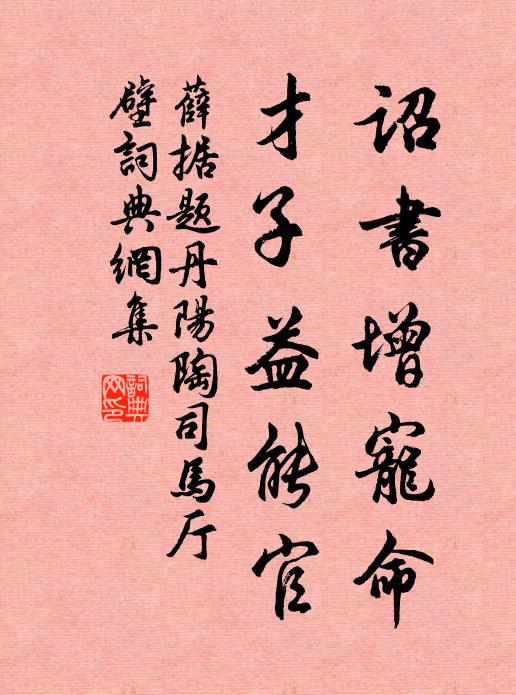 詔書增寵命
才子益能官
薛据题丹陽陶司馬厅
壁詞典網集
詞典
网印